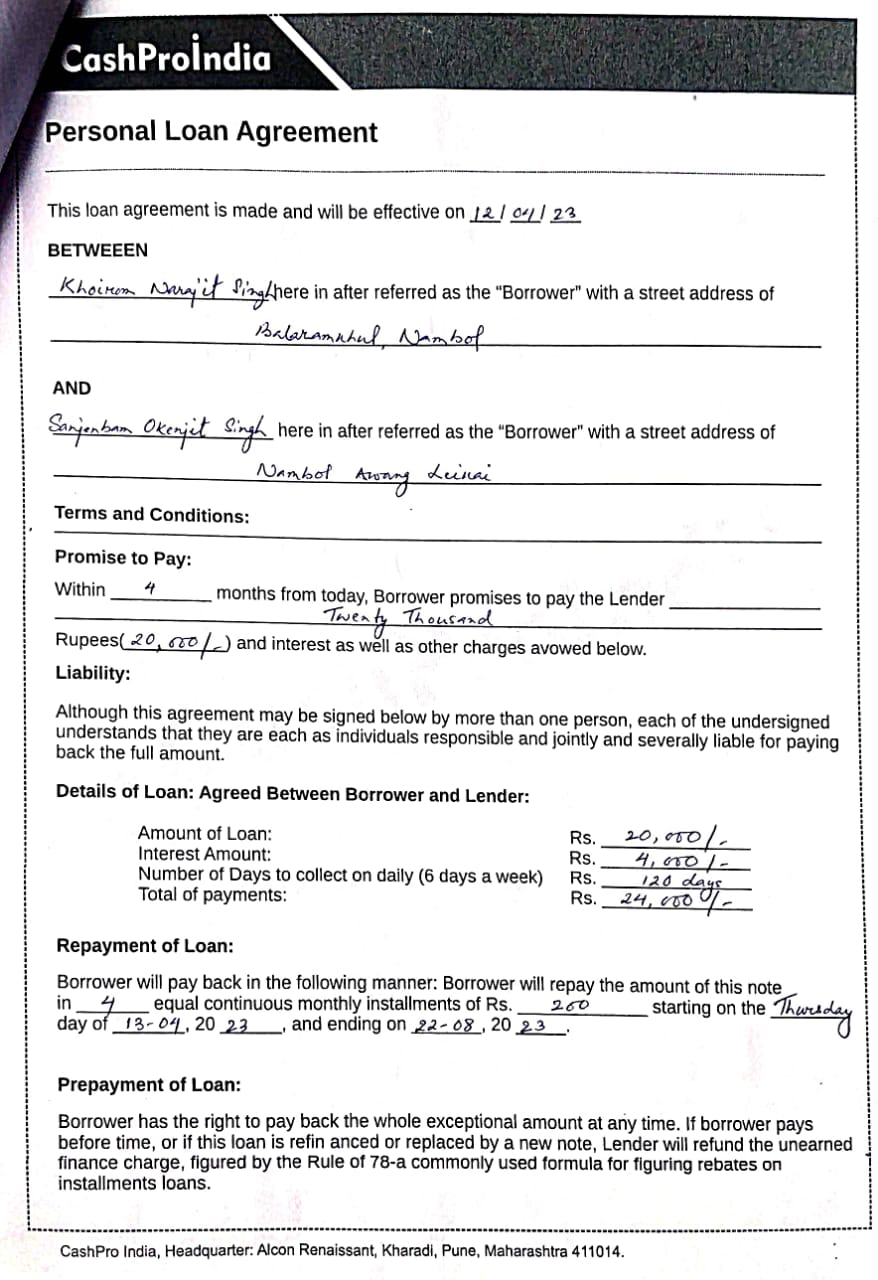 CashProİndia
Personal Loan Agreement
This loan agreement is made and will be effective on 12/04/23
BETWEEEN
Khoirom Narajit Singh here in after referred as the “Borrower” with a street address of
Balaramkhul, Nambol
AND
Sanjenbam Okenjit Singh here in after referred as the “Borrower” with a street address of
Nambol Awang Leikai
Terms and Conditions:
Promise to Pay:
Within 4 months from today, Borrower promises to pay the Lender
Twenty Thousand
Rupees( 20,000/-) and interest as well as other charges avowed below.
Liability:
Although this agreement may be signed below by more than one person, each of the undersigned
understands that they are each as individuals responsible and jointly and severally liable for paying
back the full amount.
Details of Loan: Agreed Between Borrower and Lender:
Amount of Loan: Rs. 20,000/-
Interest Amount: Rs. 4,000/-
Number of Days to collect on daily (6 days a week) Rs. 120 days
Total of payments: Rs. 24,000/-
Repayment of Loan:
Borrower will pay back in the following manner: Borrower will repay the amount of this note
in 4 equal continuous monthly installments of Rs. 200 starting on the Thursday
day of 13-04, 20 23, and ending on 22-08, 20 23.
Prepayment of Loan:
Borrower has the right to pay back the whole exceptional amount at any time. If borrower pays
before time, or if this loan is refin anced or replaced by a new note, Lender will refund the unearned
finance charge, figured by the Rule of 78-a commonly used formula for figuring rebates on
installments loans.
CashPro India, Headquarter: Alcon Renaissant, Kharadi, Pune, Maharashtra 411014.